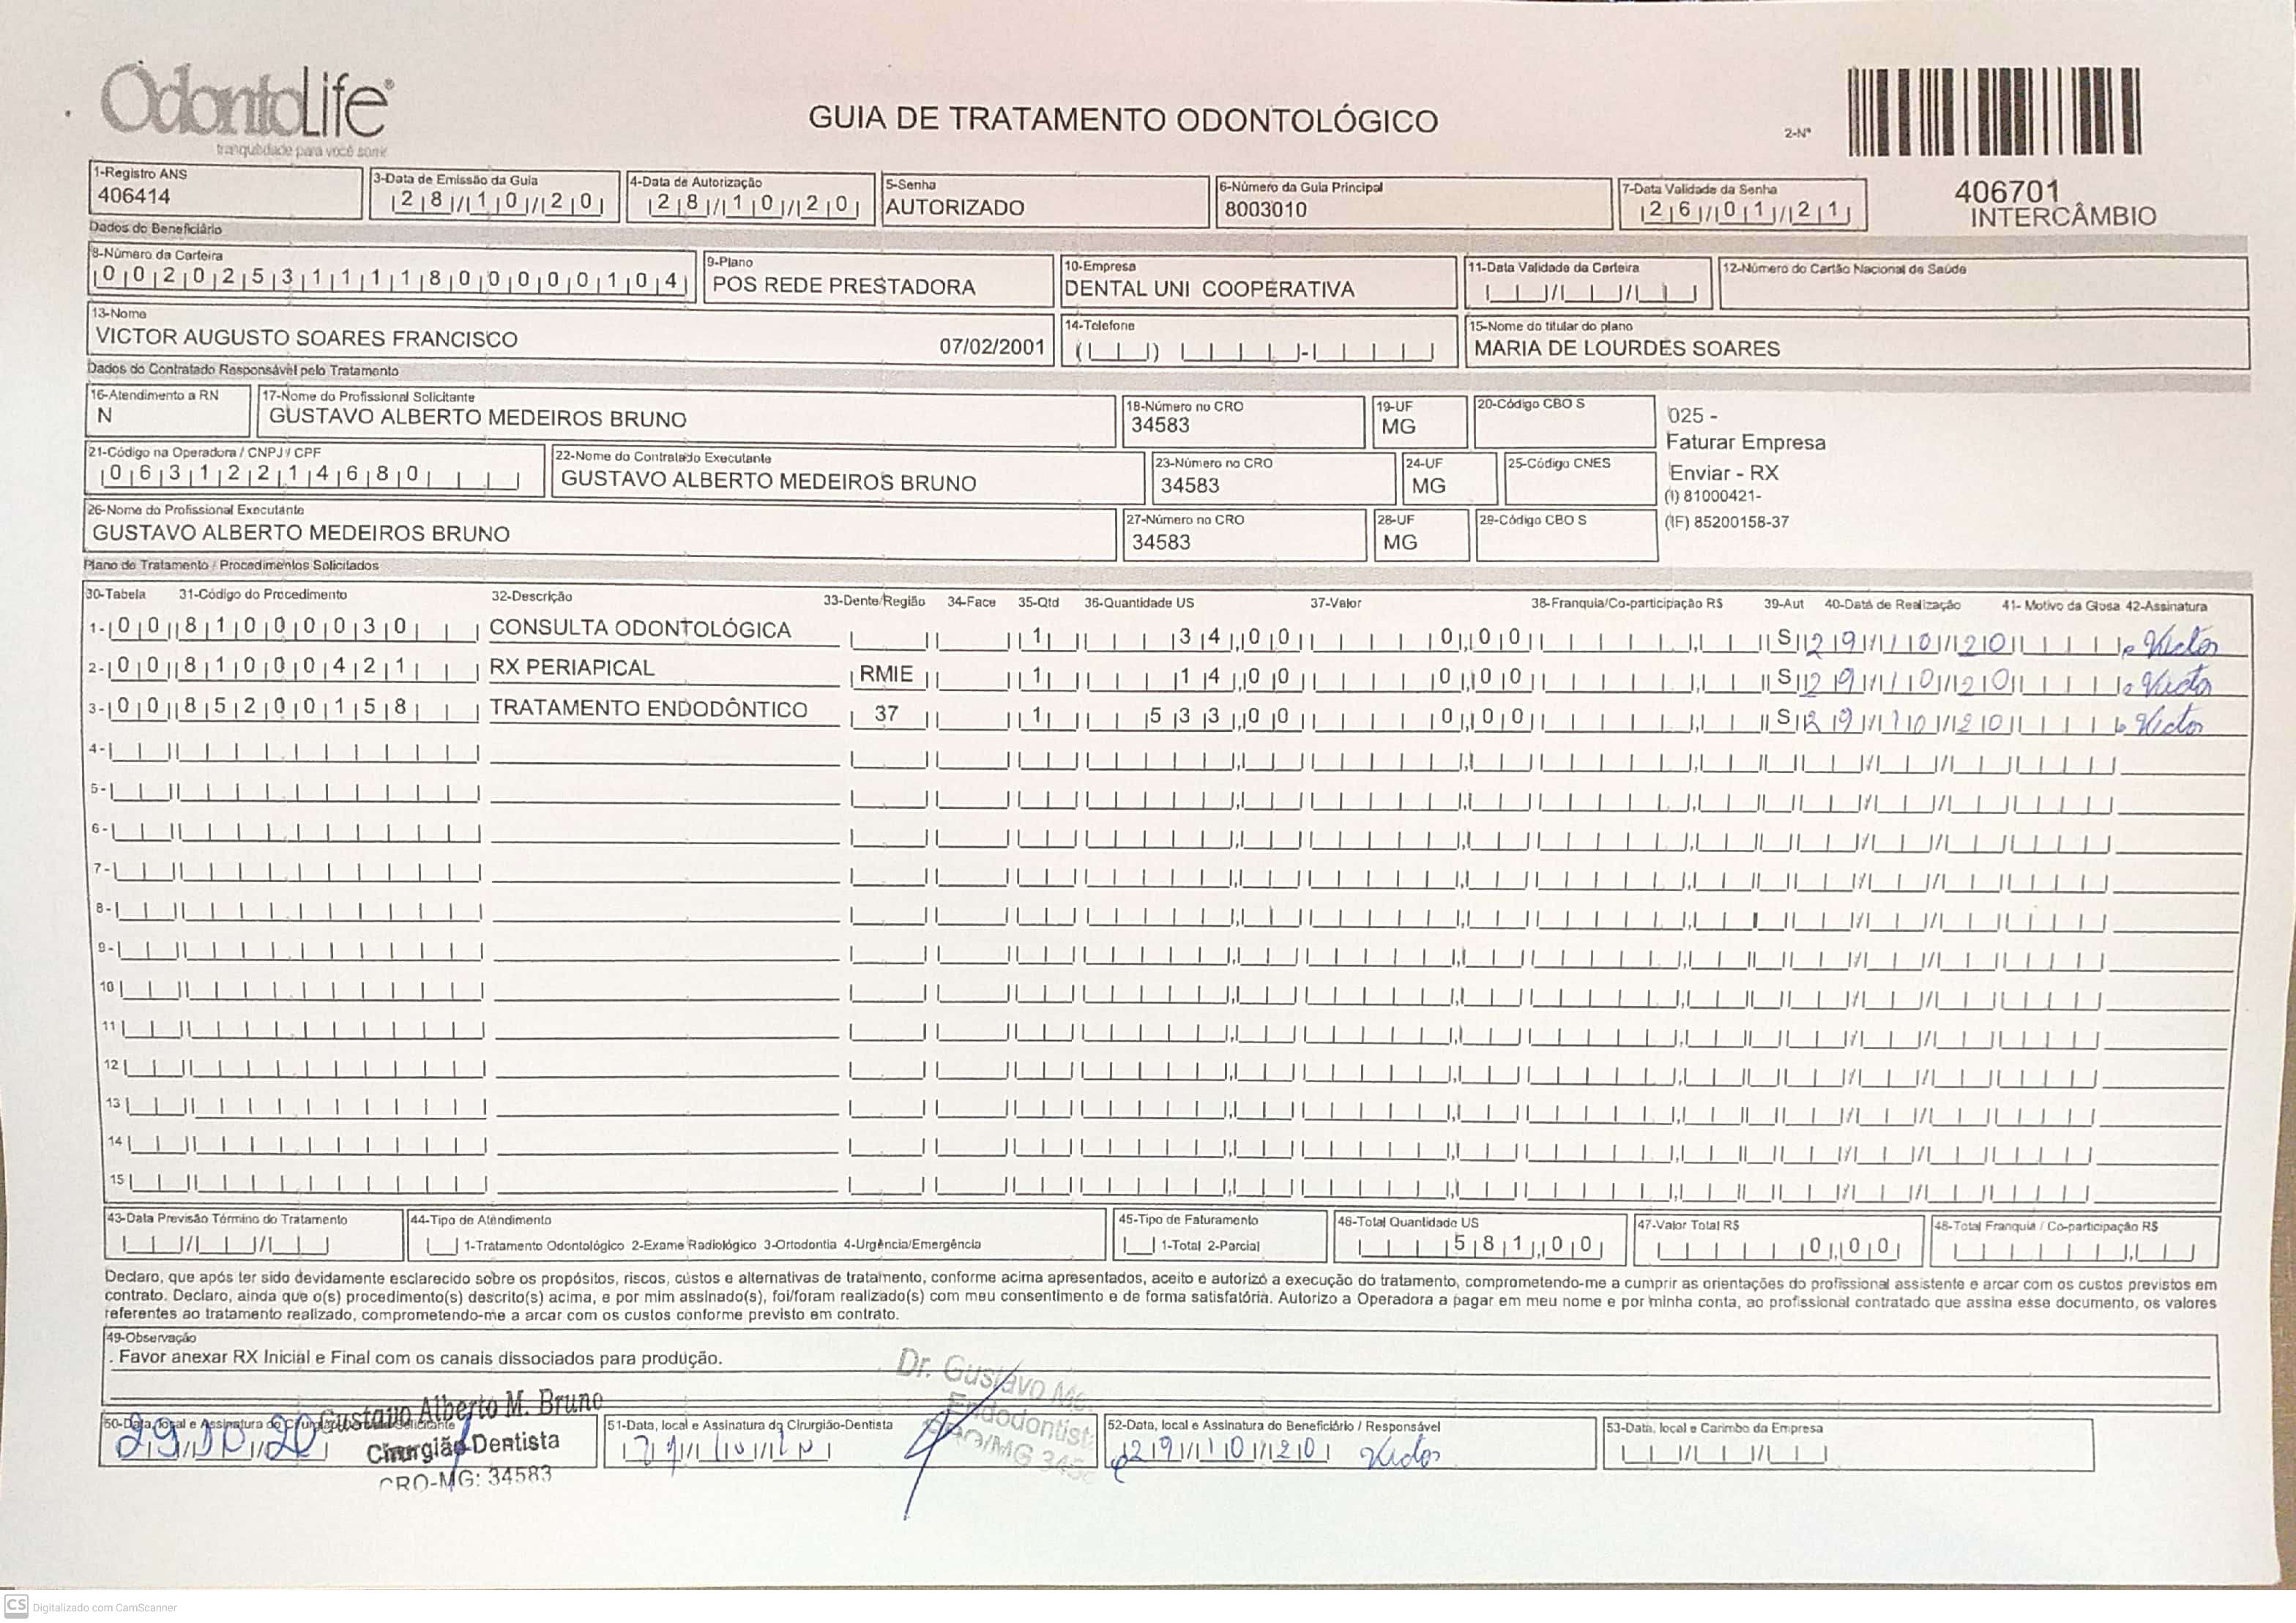 OdontoLife®
tranquilidade para você sorrir
GUIA DE TRATAMENTO ODONTOLÓGICO
2-Nº
406701
INTERCÂMBIO
1-Registro ANS
406414
3-Data de Emissão da Guia
28/10/20
4-Data de Autorização
28/10/20
5-Senha
AUTORIZADO
6-Número da Guia Principal
8003010
7-Data Validade da Senha
26/01/21
Dados do Beneficiário
8-Número da Carteira
00202531111800000104
9-Plano
POS REDE PRESTADORA
10-Empresa
DENTAL UNI COOPERATIVA
11-Data Validade da Carteira
12-Número do Cartão Nacional de Saúde
13-Nome
VICTOR AUGUSTO SOARES FRANCISCO 07/02/2001
14-Telefone
15-Nome do titular do plano
MARIA DE LOURDES SOARES
Dados do Contratado Responsável pelo Tratamento
16-Atendimento a RN
N
17-Nome do Profissional Solicitante
GUSTAVO ALBERTO MEDEIROS BRUNO
18-Número no CRO
34583
19-UF
MG
20-Código CBO S
025 -
Faturar Empresa
Enviar - RX
(I) 81000421-
(IF) 85200158-37
21-Código na Operadora / CNPJ / CPF
06312214680
22-Nome do Contratado Executante
GUSTAVO ALBERTO MEDEIROS BRUNO
23-Número no CRO
34583
24-UF
MG
25-Código CNES
26-Nome do Profissional Executante
GUSTAVO ALBERTO MEDEIROS BRUNO
27-Número no CRO
34583
28-UF
MG
29-Código CBO S
Plano de Tratamento / Procedimentos Solicitados
30-Tabela 31-Código do Procedimento 32-Descrição 33-Dente/Região 34-Face 35-Qtd 36-Quantidade US 37-Valor 38-Franquia/Co-participação R$ 39-Aut 40-Data de Realização 41- Motivo da Glosa 42-Assinatura
1- 00 81000030 CONSULTA ODONTOLÓGICA 1 34,00 0,00 S 29/10/20 Victor
2- 00 81000421 RX PERIAPICAL RMIE 1 14,00 0,00 S 29/10/20 Victor
3- 00 85200158 TRATAMENTO ENDODÔNTICO 37 1 533,00 0,00 S 29/10/20 Victor
4-
5-
6-
7-
8-
9-
10
11
12
13
14
15
43-Data Previsão Término do Tratamento
44-Tipo de Atendimento
1-Tratamento Odontológico 2-Exame Radiológico 3-Ortodontia 4-Urgência/Emergência
45-Tipo de Faturamento
1-Total 2-Parcial
46-Total Quantidade US
581,00
47-Valor Total R$
0,00
48-Total Franquia / Co-participação R$
Declaro, que após ter sido devidamente esclarecido sobre os propósitos, riscos, custos e alternativas de tratamento, conforme acima apresentados, aceito e autorizo a execução do tratamento, comprometendo-me a cumprir as orientações do profissional assistente e arcar com os custos previstos em
contrato. Declaro, ainda que o(s) procedimento(s) descrito(s) acima, e por mim assinado(s), foi/foram realizado(s) com meu consentimento e de forma satisfatória. Autorizo a Operadora a pagar em meu nome e por minha conta, ao profissional contratado que assina esse documento, os valores
referentes ao tratamento realizado, comprometendo-me a arcar com os custos conforme previsto em contrato.
49-Observação
. Favor anexar RX Inicial e Final com os canais dissociados para produção.
50-Data, local e Assinatura do Cirurgião-Dentista Solicitante
29/10/20
Gustavo Alberto M. Bruno
Cirurgião-Dentista
CRO-MG: 34583
51-Data, local e Assinatura do Cirurgião-Dentista
Dr. Gustavo
Endodontista
52-Data, local e Assinatura do Beneficiário / Responsável
29/10/20 Victor
53-Data, local e Carimbo da Empresa
CS Digitalizado com CamScanner